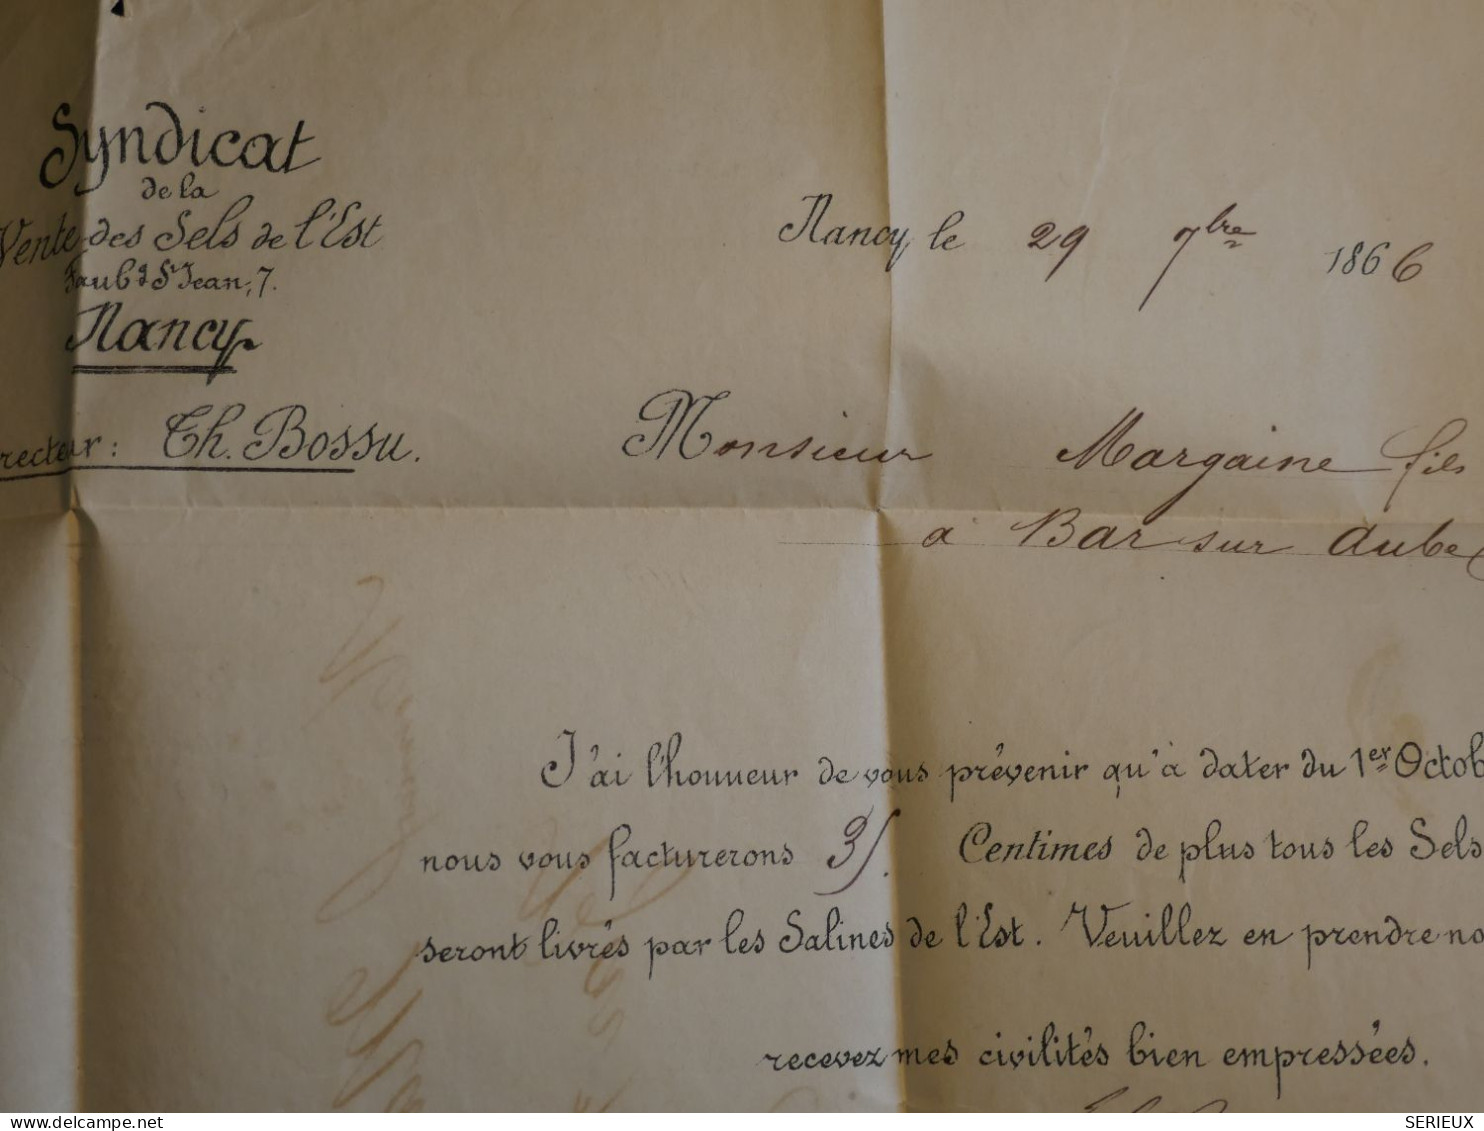 Syndicat
de la
Vente des Sels de l'Est
Faubg St Jean, 7.
Nancy
recteur: Th. Bossu.
Nancy, le 29 7bre 1866
Monsieur Margaine fils
à Bar sur Aube
J'ai l'honneur de vous prévenir qu'à dater du 1er Octob
nous vous facturerons Centimes de plus tous les Sels
seront livrés par les Salines de l'Est. Veuillez en prendre no
recevez mes civilités bien empressées.
SERIEUX